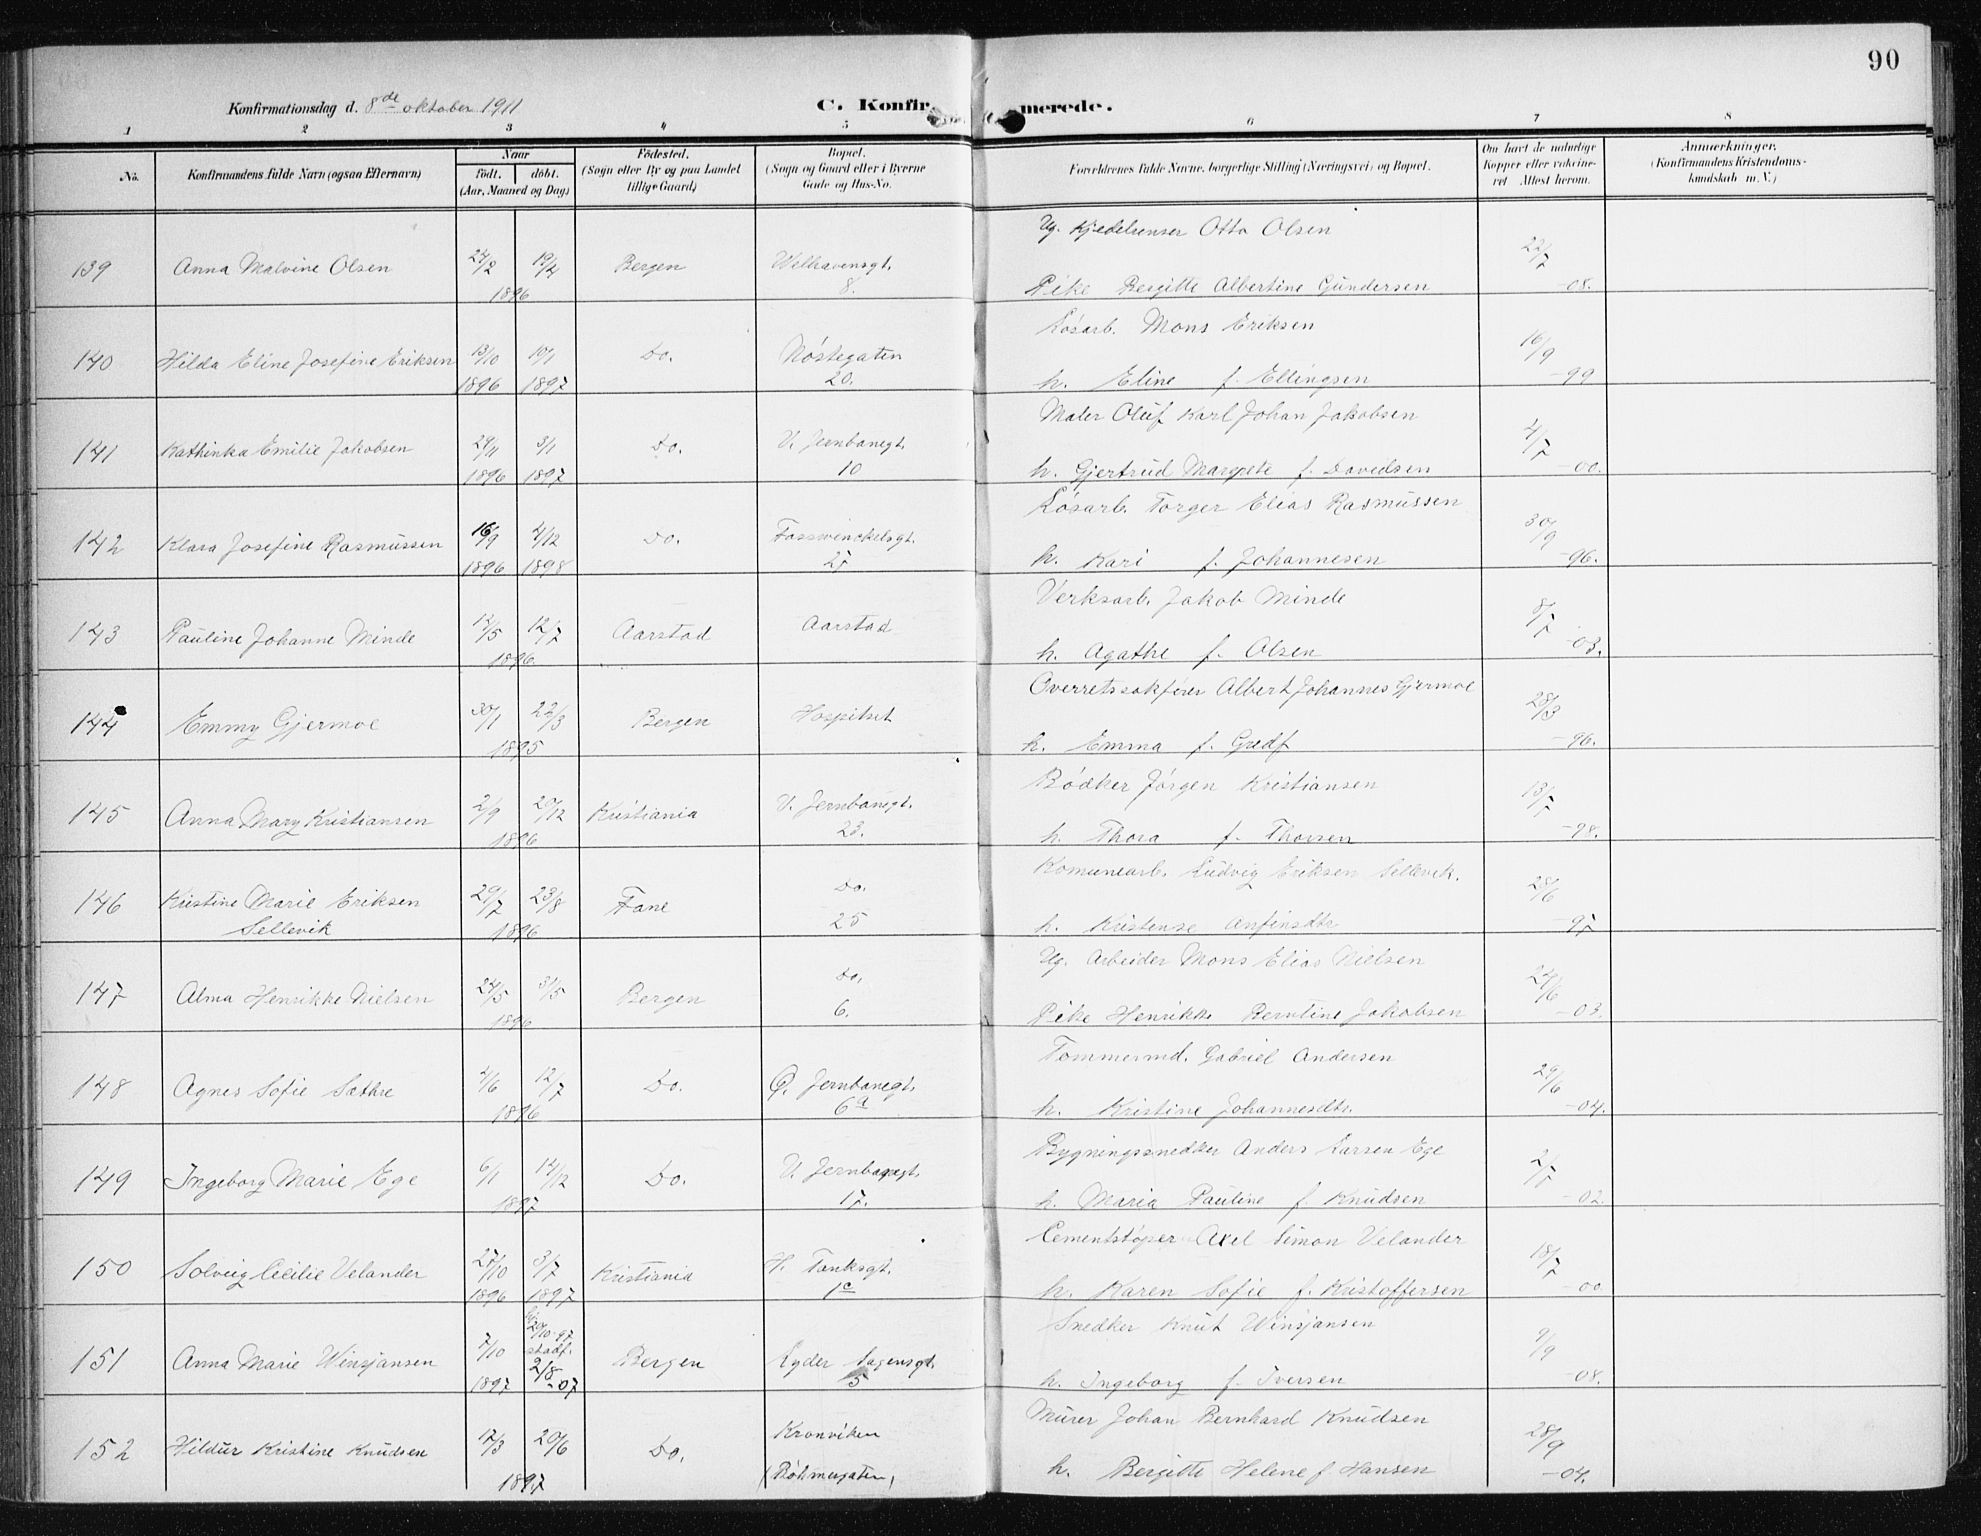 90
Konfirmationsdag d. 8de oktober 1911
C. Konfir merede.
1 2 3 4 5 6 7 8
No. Konfirmandens fulde Navn (ogsaa Efternavn) Naar født. døbt. (Aar, Maaned og Dag) Fødested. (Sogn eller By og paa Landet tillige Gaard) Bopæl. (Sogn og Gaard eller i Byerne Gade og Hus-No. Forældrenes fulde Navne, borgerlige Stilling (Næringsvei) og Bopæl. Om havt de naturlige Kopper eller vakcineret. Attest herom. Anmærkninger. (Konfirmandens Kristendomskundskab m. V.)
Ug. Kjedelrenser Otto Olsen
139 Anna Malvine Olsen 24/2 19/4 Bergen Welhavensgt. 22/7
1896 8. Pike Bergitte Albertine Gundersen -08.
Løsarb. Mons Eriksen
140 Hilda Eline Josefine Eriksen 13/10 10/1 Do. Nøstegaten 16/9
1896 1897 20. h. Eline f. Ellingsen -99
Maler Oluf Karl Johan Jakobsen
141 Kathinka Emilie Jakobsen 29/11 3/1 Do. V. Jernbanegt. 4/7
1896 1897 10 h. Gjertrud Margrete f. Davidsen -00.
Løsarb. Torger Elias Rasmussen
142 Klara Josefine Rasmussen 16/9 4/12 Do. Fosswinckelsgt. 30/9
1896 1898 25 h. Kari f. Johannesen -96.
Verksarb. Jakob Minde
143 Pauline Johanne Minde 12/5 12/7 Aarstad Aarstad 8/7
1896 h. Agathe f. Olsen -03.
Overretssakfører Albert Johannes Gjermoe
144 Emmy Gjermoe 30/1 22/3 Bergen Hospitset 28/3
1895 h. Emma f. Gredf -96.
Bødker Jørgen Kristiansen
145 Anna Mary Kristiansen 2/9 20/12 Kristiania V. Jernbanegt. 13/7
1896 23. h. Thora f. Thorsen -98.
Komunearb. Ludvig Eriksen Sellevik.
146 Kristine Marie Eriksen 29/7 23/8 Fane Do. 28/6
Sellevik 1896 25 h. Kristense Anfinsdtr -97
Ug. Arbeider Mons Elias Nielsen
147 Alma Henrikke Nielsen 24/5 31/5 Bergen Do. 24/6
1896 6. Pike Henrikke Berntine Jakobsen -03.
Tømmermd. Gabriel Andersen
148 Agnes Sofie Sæthre 4/6 12/7 Do. Ø. Jernbanegt. 29/6
1896 6a h. Kristine Johannesdtr. -04.
Bygningssnedker Anders Larsen Ege
149 Ingeborg Marie Ege 6/1 14/12 Do. V. Jernbanegt. 2/7
1897 17. h. Maria Pauline f. Knudsen -02.
Cementstøper Axel Simon Velander
150 Solveig Cecilie Velander 27/10 3/7 Kristiania H. Tanksgt. 18/7
1896 1897 1c h. Karen Sofie f. Kristoffersen -00
Snedker Knut Winsjansen
151 Anna Marie Winsjansen 7/10 24/10-97 stadf. Bergen Lyder Sagensgt. 9/9
1897 2/8-07 5 h. Ingeborg f. Iversen -08.
Murer Johan Bernhard Knudsen
152 Hildur Kristine Knudsen 17/3 20/6 Do. Kronviken 28/9
1897 (Bøhmergaten) h. Bergitte Helene f. Hansen -04.